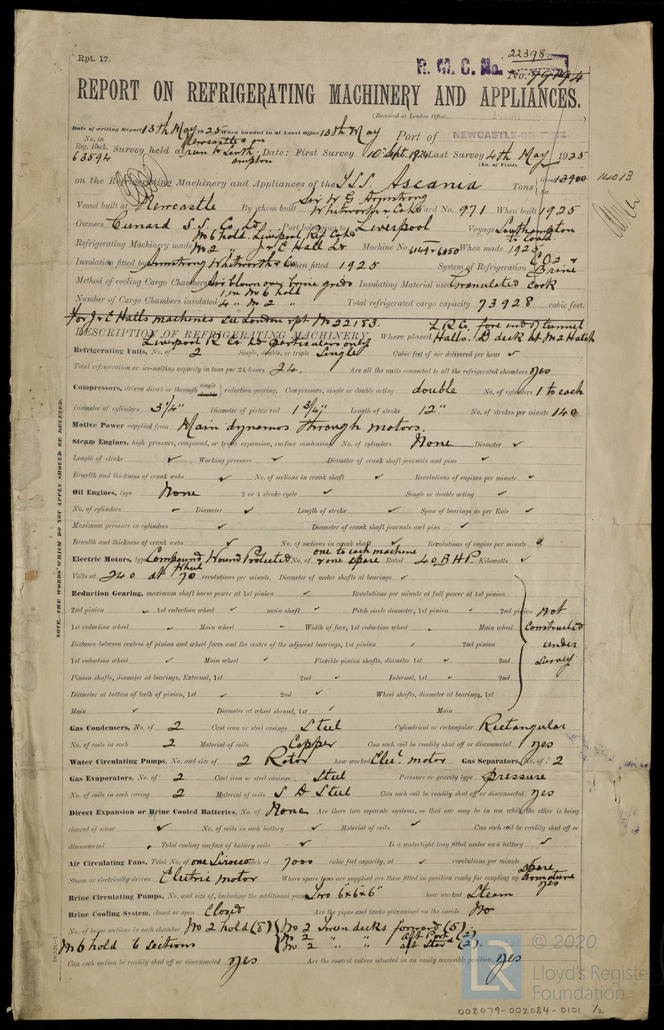 Rpt. 17.
22398
R. M. C. No.
No.
REPORT ON REFRIGERATING MACHINERY AND APPLIANCES.
(Received at London Office
Date of writing Report 13th May 1925 When handed in at Local Office 13th May Port of NEWCASTLE-ON-TYNE
No. in Reg. Book. 63594 Survey held at Newcastle & on run to Southampton Date: First Survey 10th Sept. 1924 Last Survey 4th May 1925
(No. of Visits
on the Refrigerating Machinery and Appliances of the TSS Ascania Tons 13900 14013
Vessel built at Newcastle By whom built Sir W G Armstrong Whitworth & Co Ld Yard No. 971 When built 1925
Owners Cunard S.S. Co Ld Port belonging to Liverpool Voyage Southampton to Canada
Refrigerating Machinery made No 6 hold. Liverpool Refg Co Ld No 2 " J & E Hall Ld Machine No. 6149 & 6050 When made 1925
Insulation fitted by Armstrong Whitworth & Co When fitted 1925 System of Refrigeration CO2 & Brine
Method of cooling Cargo Chambers Air blown over brine grids Insulating Material used Granulated Cork
Number of Cargo Chambers insulated 1 in No 6 hold 4 " No 2 " Total refrigerated cargo capacity 73928 cubic feet.
For J & E Halls machines see London rpt No 22183.
DESCRIPTION OF REFRIGERATING MACHINERY. Liverpool R Co Ld particulars only Where placed L R Co. fore end of tunnel Halls. D deck at No 2 Hatch
Refrigerating Units, No. of 2 Single, double, or triple Single Cubic feet of air delivered per hour ✓
Total refrigeration or ice-melting capacity in tons per 24 hours 24. Are all the units connected to all the refrigerated chambers yes
Compressors, driven direct or through single double reduction gearing. Compressors, single or double acting double No. of cylinders 1 to each
Diameter of cylinders 3¼" Diameter of piston rod 1¾" Length of stroke 12" No. of strokes per minute 140
Motive Power supplied from Main dynamos through motors.
Steam Engines, high pressure, compound, or triple expansion, surface condensing No. of cylinders None Diameter ✓
Length of stroke ✓ Working pressure ✓ Diameter of crank shaft journals and pins ✓
Breadth and thickness of crank webs ✓ No. of sections in crank shaft ✓ Revolutions of engines per minute ✓
Oil Engines, type None 2 or 4 stroke cycle ✓ Single or double acting ✓
No. of cylinders – Diameter ✓ Length of stroke ✓ Span of bearings as per Rule ✓
Maximum pressure in cylinders ✓ Diameter of crank shaft journals and pins ✓
Breadth and thickness of crank webs ✓ No. of sections in crank shaft ✓ Revolutions of engine per minute
Electric Motors, type Compound Wound Protected No. of one to each machine & one spare Rated 40 BHP. Kilowatts ✓
Volts at 240 at 170 revolutions per minute. Diameter of motor shafts at bearings ✓
Reduction Gearing, maximum shaft horse power at 1st pinion Revolutions per minute at full power at 1st pinion
2nd pinion 1st reduction wheel main shaft Pitch circle diameter, 1st pinion 2nd pinion Not
1st reduction wheel Main wheel Width of face, 1st reduction wheel Main wheel Constructed
Distance between centres of pinion and wheel faces and the centre of the adjacent bearings, 1st pinion 2nd pinion under
1st reduction wheel Main wheel Flexible pinion shafts, diameter 1st 2nd Survey
Pinion shafts, diameter at bearings, External, 1st 2nd Internal, 1st 2nd
Diameter at bottom of teeth of pinion, 1st 2nd Wheel shafts, diameter at bearings, 1st
Main Diameter at wheel shroud, 1st Main
Gas Condensers, No. of 2 Cast iron or steel casings Steel Cylindrical or rectangular Rectangular
No. of coils in each 2 Material of coils Copper Can each coil be readily shut off or disconnected yes
Water Circulating Pumps, No. and size of 2 Rotor how worked Elec. motor Gas Separators, No. of 2
Gas Evaporators, No. of 2 Cast iron or steel casings Steel Pressure or gravity type pressure
No. of coils in each casing 2 Material of coils S D Steel Can each coil be readily shut off or disconnected yes
Direct Expansion or Brine Cooled Batteries, No. of None Are there two separate systems, so that one may be in use while the other is being
cleared of snow ✓ No. of coils in each battery ✓ Material of coils ✓ Can each coil be readily shut off or
disconnected ✓ Total cooling surface of battery coils ✓ Is a watertight tray fitted under each battery ✓
Air Circulating Fans, Total No. of one Sirocco each of 7000 cubic feet capacity, at ✓ revolutions per minute
Steam or electrically driven Electric motor Where spare fans are supplied are these fitted in position ready for coupling up spare armature yes
Brine Circulating Pumps, No. and size of, including the additional pump Two 6x6x6" how worked Steam
Brine Cooling System, closed or open Closed Are the pipes and tanks galvanised on the inside No
No. of brine sections in each chamber No 2 hold (5) No 2 Tween decks forward (5).
No 6 hold 6 sections No 2 " " aft Port (2)
No 2 " " aft Stard (2).
Can each section be readily shut off or disconnected yes Are the control valves situated in an easily accessible position yes
NOTE.—THE WORDS WHICH DO NOT APPLY SHOULD BE DELETED.
© 2020
Lloyd's Register
Foundation
002079-002084-0101 1/2